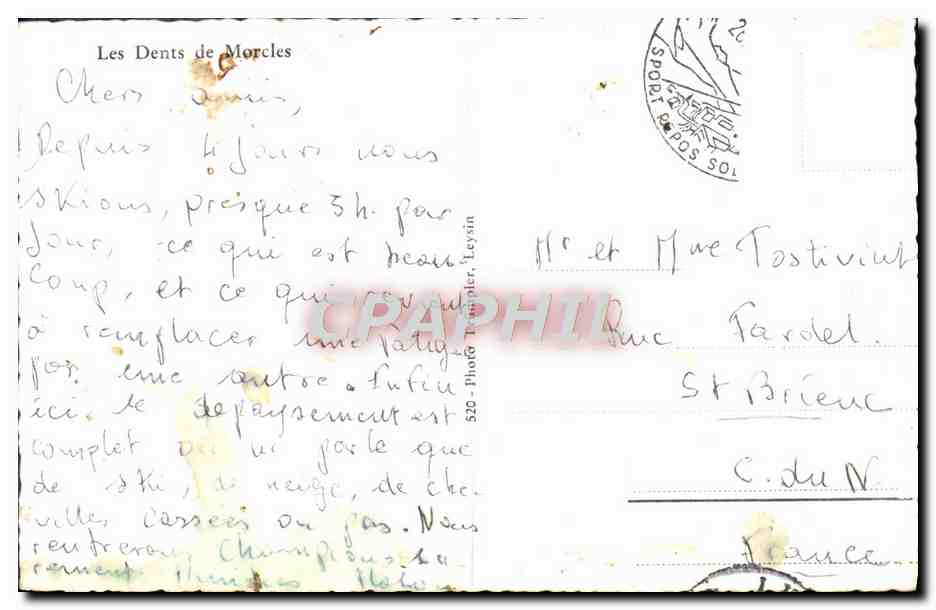 Les Dents de Morcles
Chers amis,
Depuis 4 jours nous
skions, presque 5h. par
jour, ce qui est beau-
coup, et ce qui revient
à remplacer une fatigue
par une autre. Enfin
ici le depaysement est
complet on ne parle que
de ski, de neige, de che-
villes cassées ou pas. Nous
rentrerons Champions su-
rement
520 - Photo Trempler, Leysin
CPAPHIL
SPORT REPOS SOL
Mr et Mme Tostivint
Rue Fardel.
St Brieuc
C. du N
France